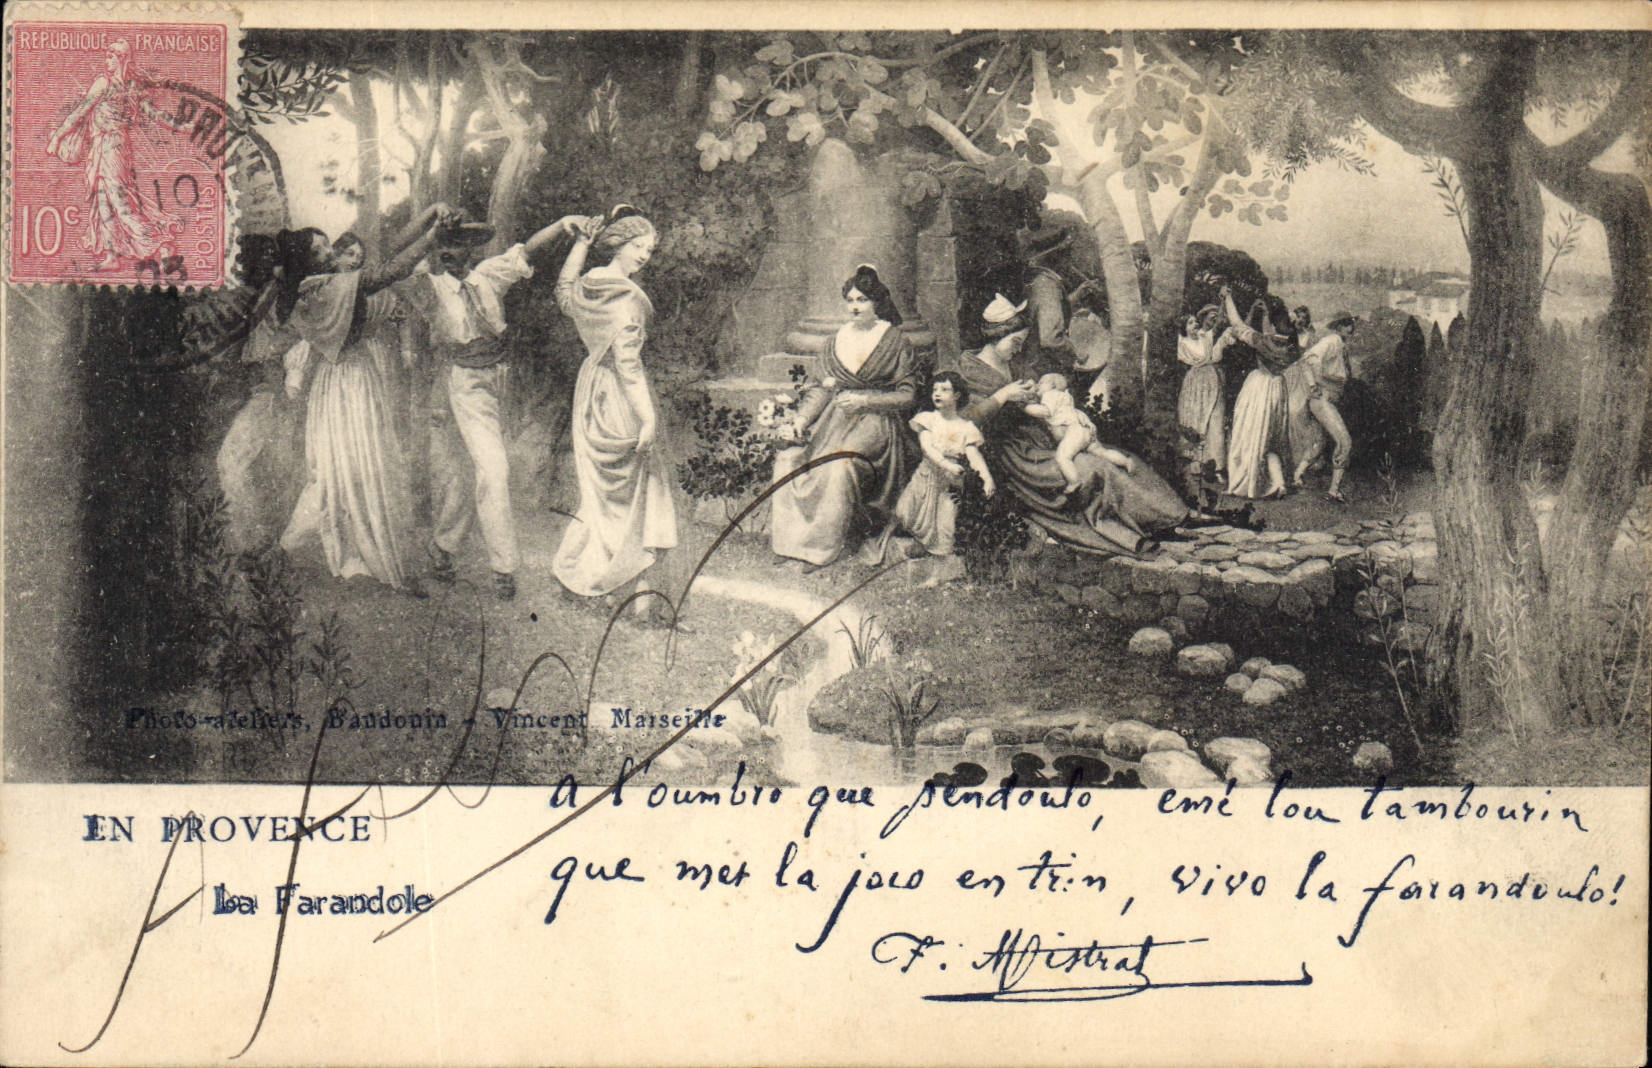 REPUBLIQUE FRANÇAISE
10c
POSTES
10
03
Photo-ateliers, Baudouin - Vincent Marseille
EN PROVENCE
La Farandole
A l'oumbro que pendoulo, emé lou tambourin
que met la joio en trin, vivo la farandoulo!
F. Mistral